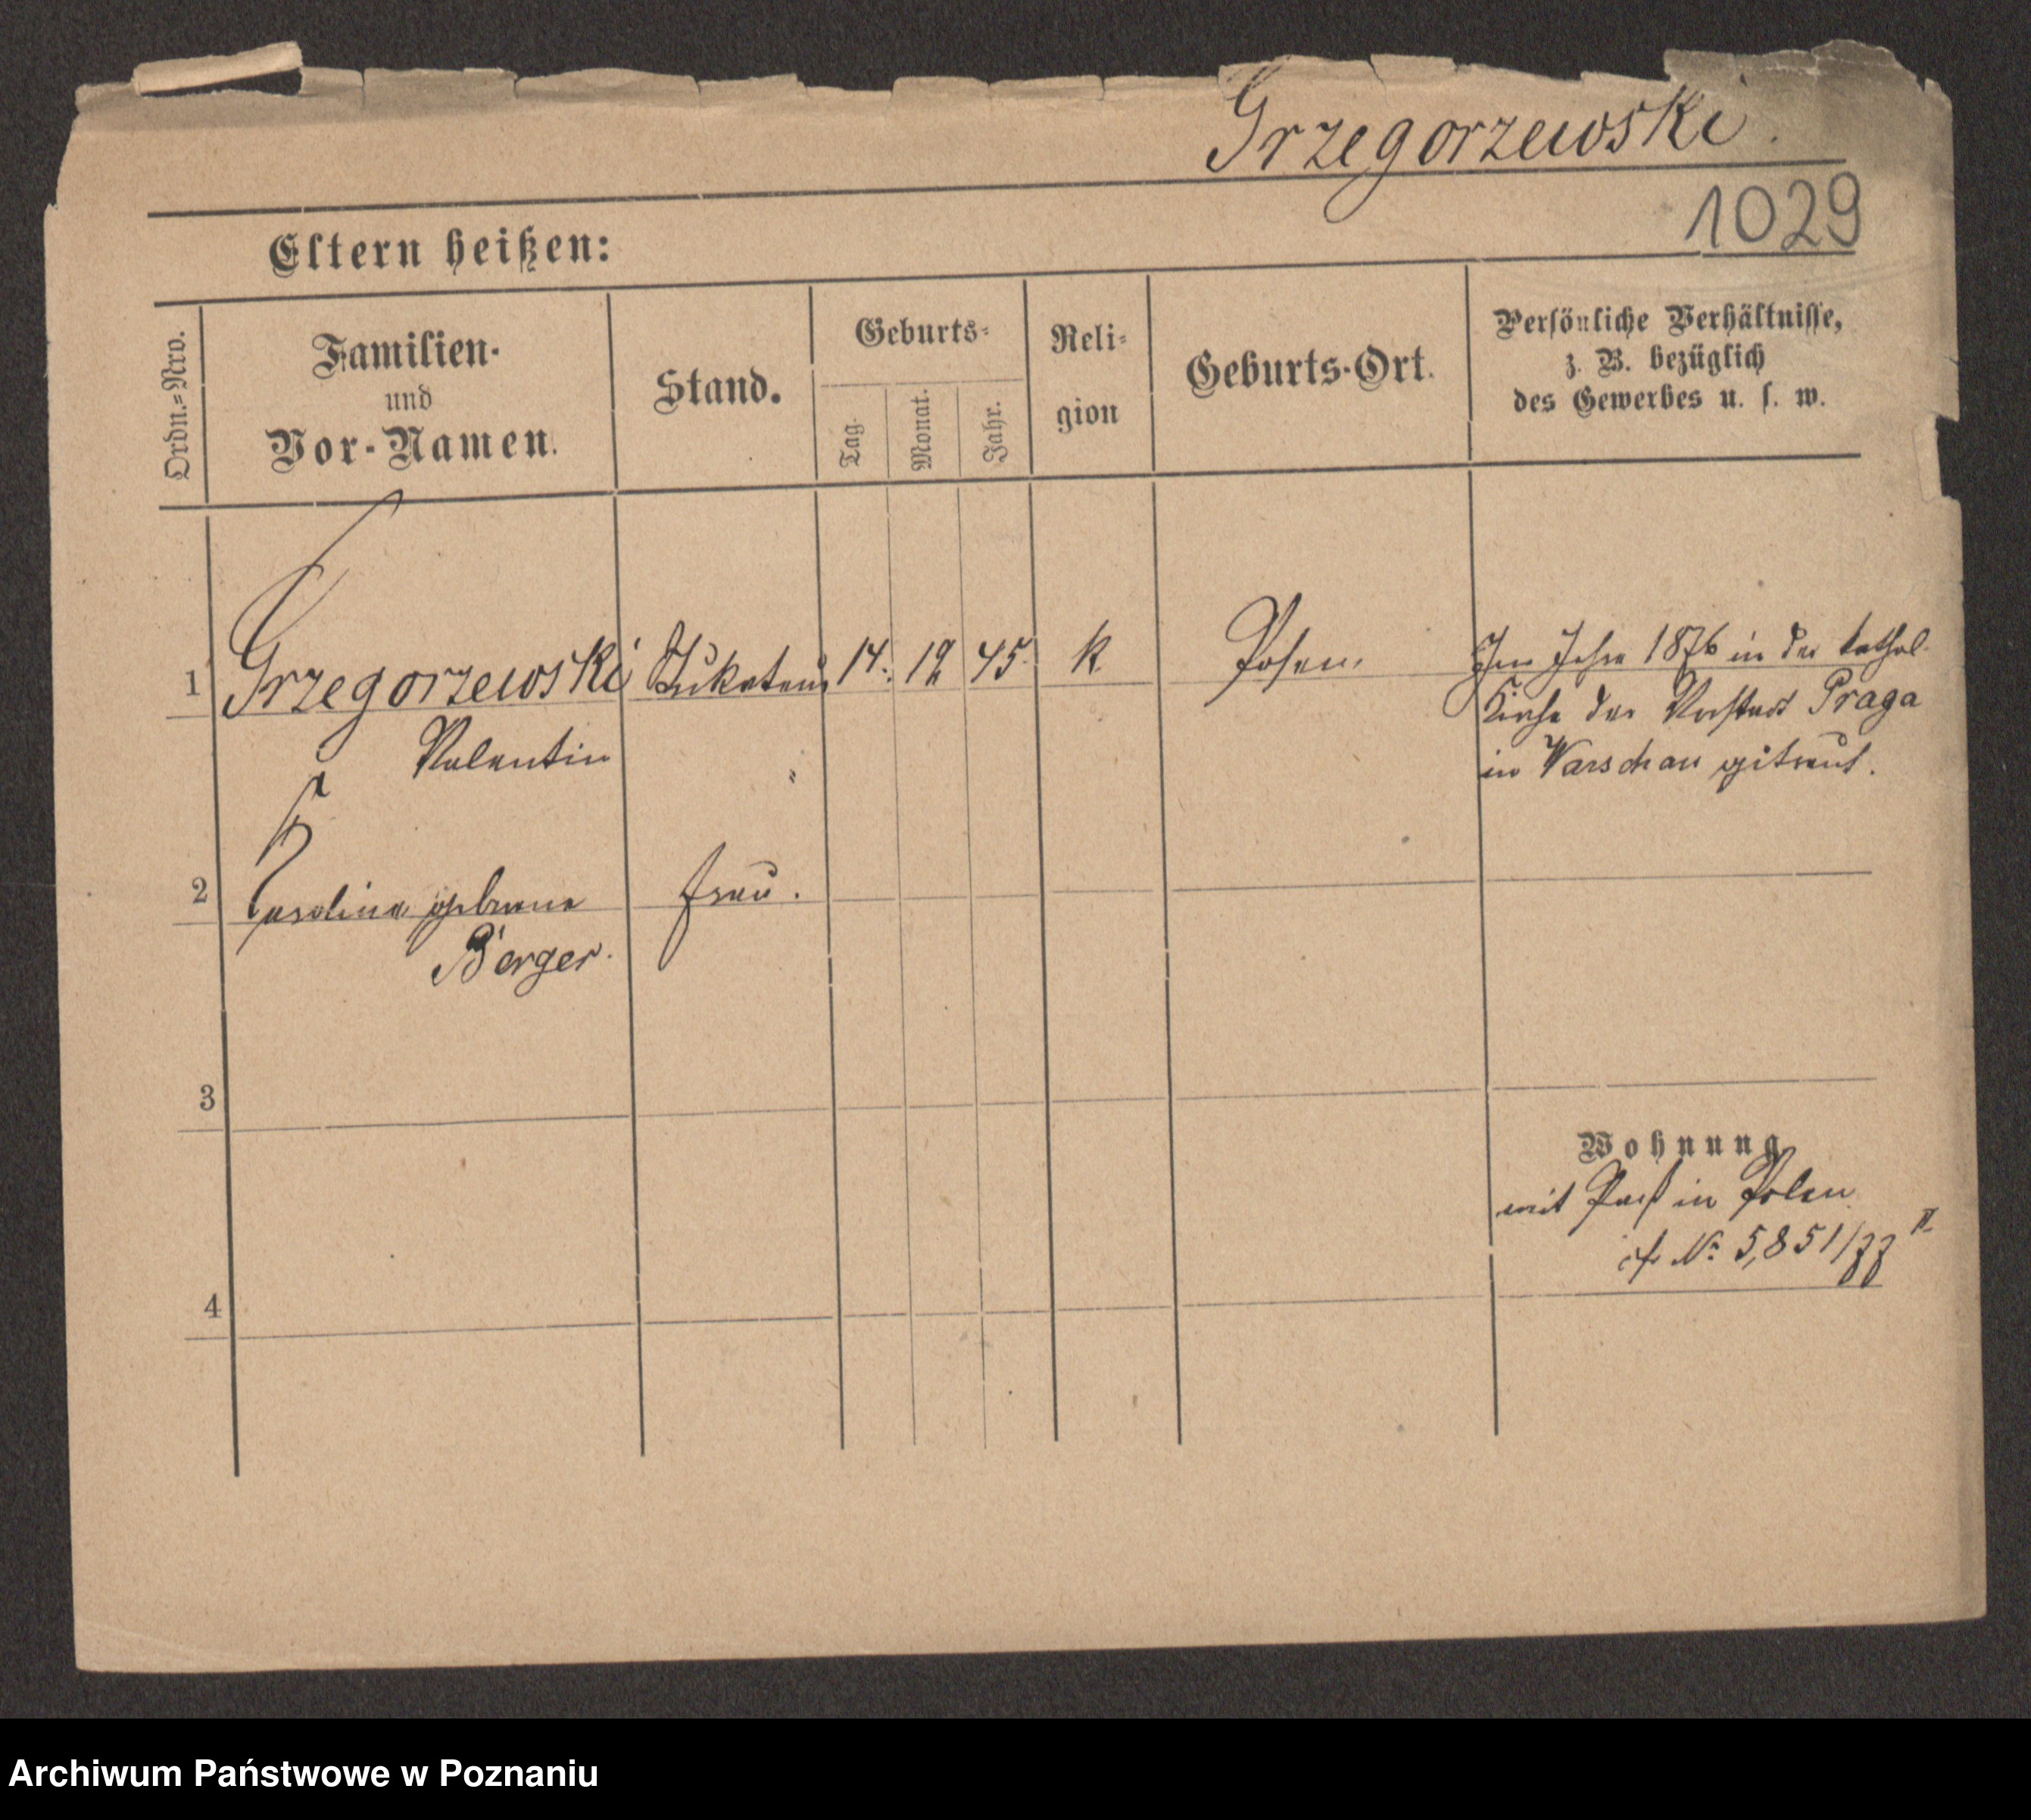 Grzegorzewski.
1029
Eltern heißen:
Ordn.-Nro.
Familien-
und
Vor-Namen.
Stand.
Geburts-
Tag.
Monat.
Jahr.
Reli-
gion
Geburts-Ort.
Persönliche Verhältnisse,
z. B. bezüglich
des Gewerbes u. s. w.
1
Grzegorzewski
Valentin
14. 12 45.
k
Posen.
Im Jahre 1876 in der kathol.
Kirche der Vorstadt Praga
in Warschau getraut.
2
Carolina geborene
Berger.
Frau.
3
Wohnung
mit Paß in Polen
cfr No 5,851/77 II
4
Archiwum Państwowe w Poznaniu